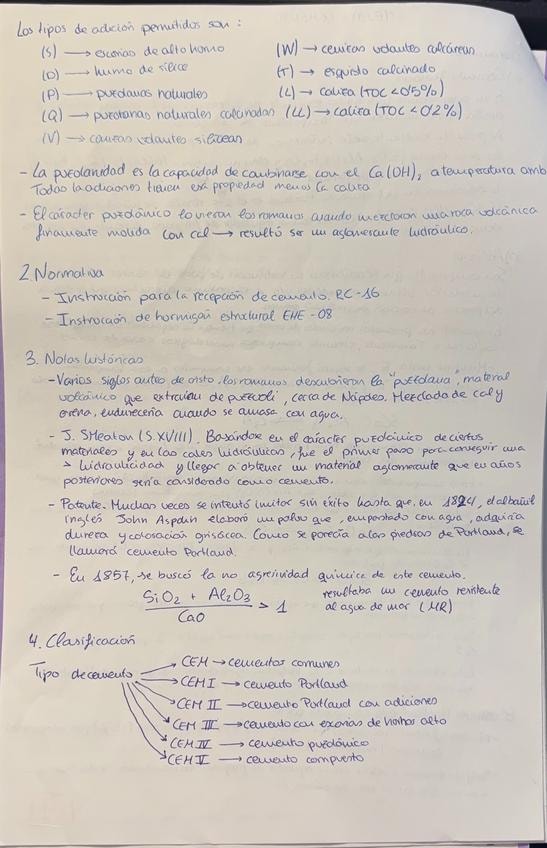 Los tipos de adición permitidos son :
(S) → escorias de alto horno
(W) → cenizas volantes calcáreas
(D) → humo de sílice
(T) → esquisto calcinado
(P) → puzolanas naturales
(L) → caliza (TOC < 0'5%)
(Q) → puzolanas naturales calcinadas
(LL) → caliza (TOC < 0'2%)
(V) → cenizas volantes silíceas
- La puzolanidad es la capacidad de combinarse con el Ca(OH)₂ a temperatura amb
Todas la adiciones tienen esa propiedad menos la caliza
- El carácter puzolánico lo vieron los romanos cuando mezclaron una roca volcánica
finamente molida con cal → resultó ser un aglomerante hidráulico.
2. Normativa
- Instrucción para la recepción de cemento. RC-16
- Instrucción de hormigón estructural EHE-08
3. Notas históricas
- Varios siglos antes de cristo, los romanos descubrieron la "puzolana", material
volcánico que extraían de puzzoli, cerca de Nápoles. Mezclado de cal y
arena, endurecería cuando se amasa con agua.
- J. SMeaton (S. XVIII). Basándose en el carácter puzolánico de ciertos
materiales y en las cales hidráulicas, fue el primer paso para conseguir una
> hidraulicidad y llegar a obtener un material aglomerante que en años
posteriores sería considerado como cemento.
- Patente. Muchas veces se intentó imitar sin éxito hasta que, en 1824, el albañil
inglés John Aspdin elaboró un polvo que, empastado con agua, adquiría
dureza y coloración grisácea. Como se parecía a las piedras de Portland, se
llamará cemento Portland.
- En 1857, se buscó la no agresividad química de este cemento.
SiO₂ + Al₂O₃ / CaO > 1
resultaba un cemento resistente
al agua de mar (MR)
4. Clasificación
Tipo de cemento
CEM → cementos comunes
CEM I → cemento Portland
CEM II → cemento Portland con adiciones
CEM III → cemento con escorias de hornos alto
CEM IV → cemento puzolánico
CEM V → cemento compuesto